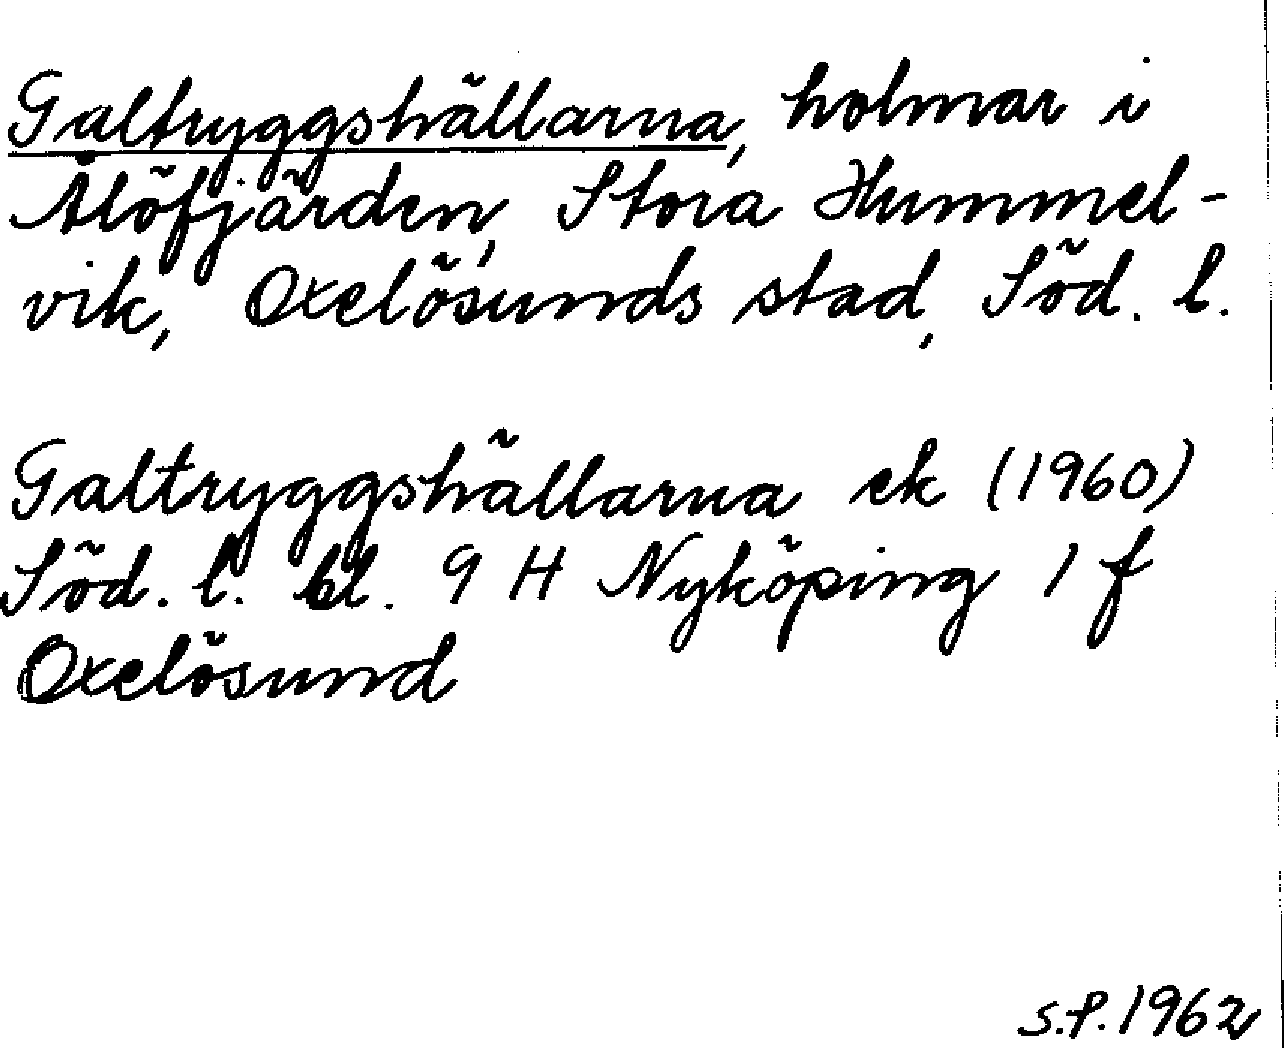 Galtryggshällarna, holmar i
Ålöfjärden, Stora Hummel-
vik, Oxelösunds stad, Söd. l.
Galtryggshällarna ek (1960)
Söd. l. bl. 9 H Nyköping 1 f
Oxelösund
S.P. 1962